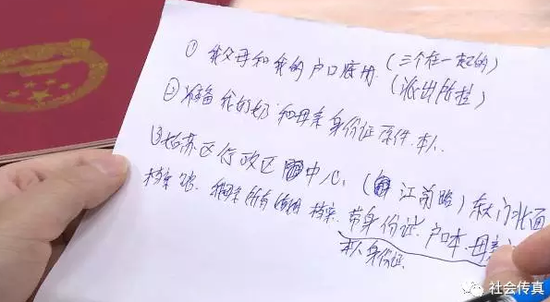 ①我父母和我的户口底册(三个在一起的)
(派出所拉)
②准备我的 和母亲身份证原件.本人
③姑苏区行政区 中心,( 江南路)东大门北面
档案 母亲所有 档案.带身份证.户口本.母亲
本人身份证.
社会传真